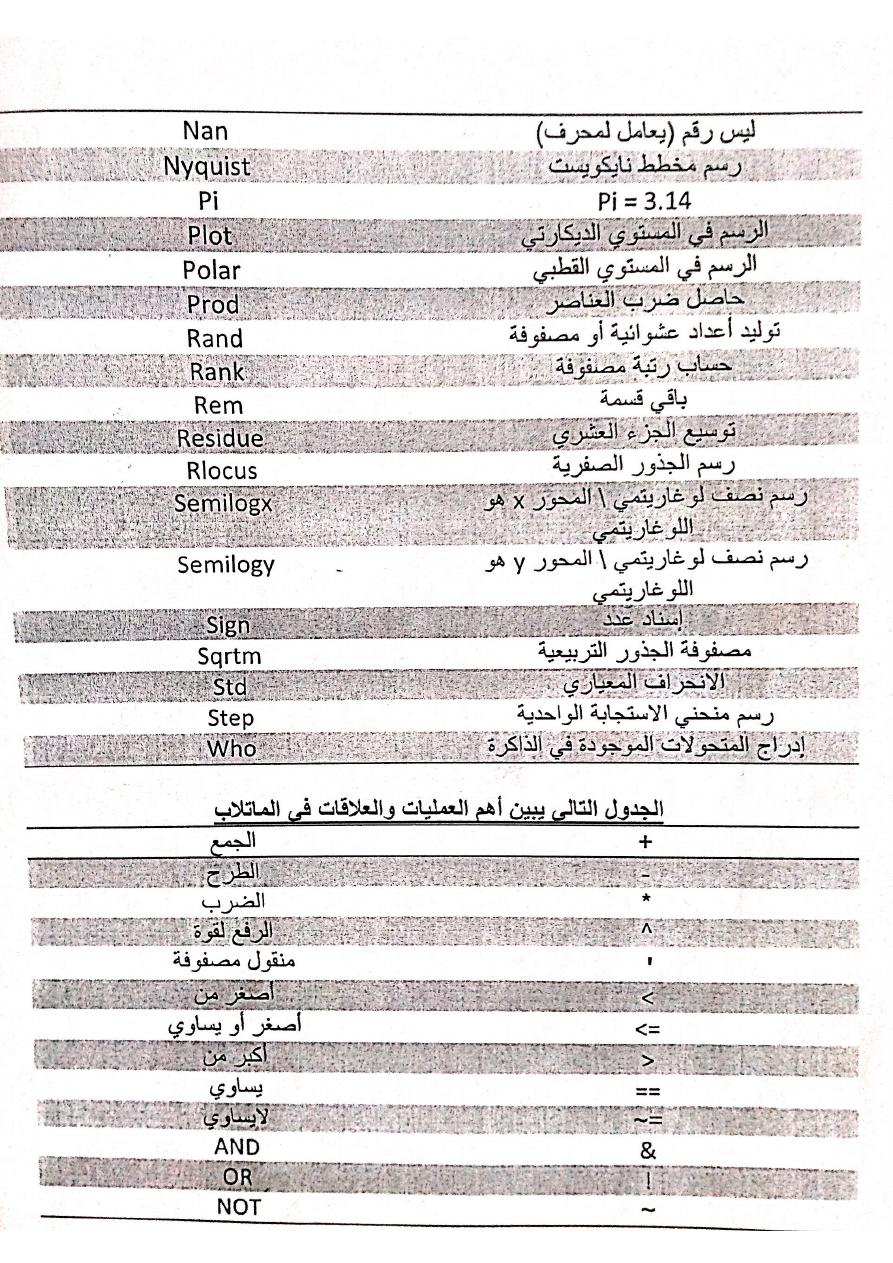 Nan ليس رقم (يعامل لمحرف)
Nyquist رسم مخطط نايكويست
Pi Pi = 3.14
Plot الرسم في المستوي الديكارتي
Polar الرسم في المستوي القطبي
Prod حاصل ضرب العناصر
Rand توليد أعداد عشوائية أو مصفوفة
Rank حساب رتبة مصفوفة
Rem باقي قسمة
Residue توسيع الجزء العشري
Rlocus رسم الجذور الصفرية
Semilogx رسم نصف لوغاريتمي \ المحور x هو
اللوغاريتمي
Semilogy رسم نصف لوغاريتمي \ المحور y هو
اللوغاريتمي
Sign إسناد عدد
Sqrtm مصفوفة الجذور التربيعية
Std الانحراف المعياري
Step رسم منحني الاستجابة الواحدية
Who إدراج المتحولات الموجودة في الذاكرة
الجدول التالي يبين أهم العمليات والعلاقات في الماتلاب
+ الجمع
- الطرح
* الضرب
^ الرفع لقوة
' منقول مصفوفة
< أصغر من
<= أصغر أو يساوي
> أكبر من
== يساوي
~= لايساوي
& AND
| OR
~ NOT